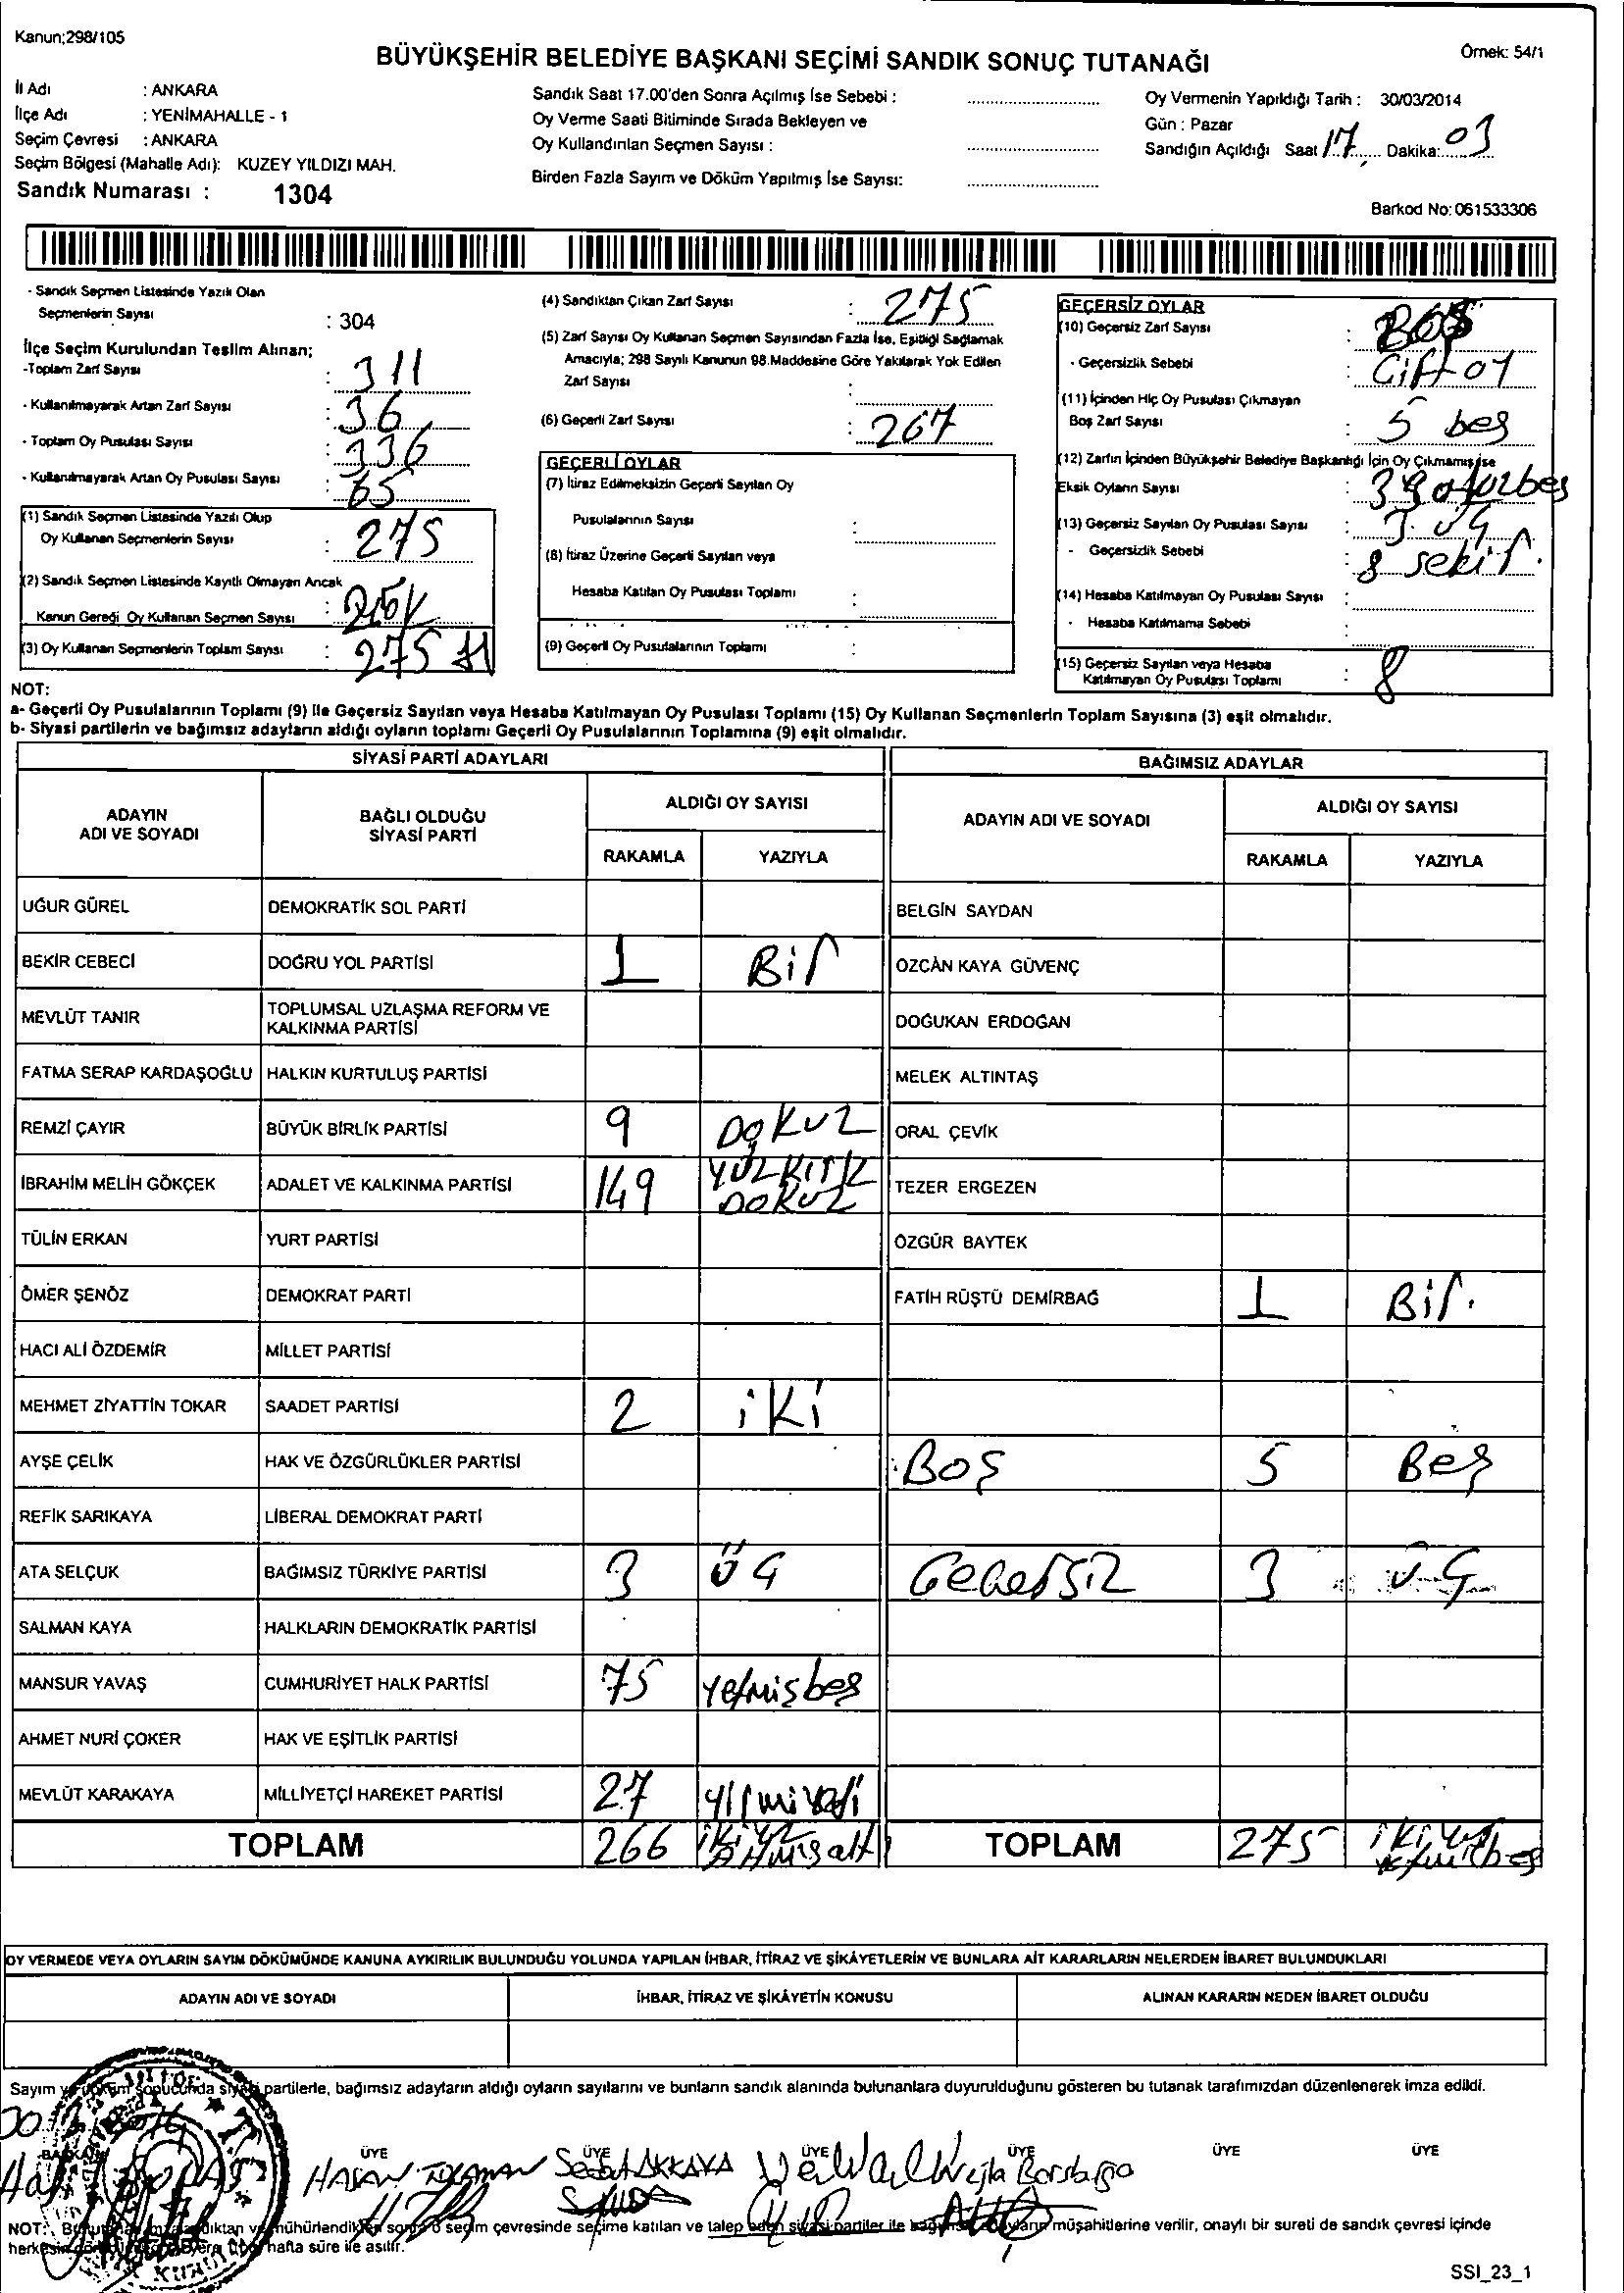 Kanun;298/105
Örnek: 54/1
BÜYÜKŞEHİR BELEDİYE BAŞKANI SEÇİMİ SANDIK SONUÇ TUTANAĞI
İl Adı : ANKARA
İlçe Adı : YENİMAHALLE - 1
Seçim Çevresi : ANKARA
Seçim Bölgesi (Mahalle Adı): KUZEY YILDIZI MAH.
Sandık Numarası : 1304
Sandık Saat 17.00'den Sonra Açılmış İse Sebebi :
Oy Verme Saati Bitiminde Sırada Bekleyen ve
Oy Kullandırılan Seçmen Sayısı :
Birden Fazla Sayım ve Döküm Yapılmış İse Sayısı:
Oy Vermenin Yapıldığı Tarih : 30/03/2014
Gün : Pazar
Sandığın Açıldığı Saat 17 Dakika: 03
Barkod No: 061533306
- Sandık Seçmen Listesinde Yazılı Olan
Seçmenlerin Sayısı : 304
İlçe Seçim Kurulundan Teslim Alınan;
-Toplam Zarf Sayısı : 311
- Kullanılmayarak Artan Zarf Sayısı : 36
- Toplam Oy Pusulası Sayısı : 336
- Kullanılmayarak Artan Oy Pusulası Sayısı : 65
(1) Sandık Seçmen Listesinde Yazılı Olup
Oy Kullanan Seçmenlerin Sayısı : 275
(2) Sandık Seçmen Listesinde Kayıtlı Olmayan Ancak
Kanun Gereği Oy Kullanan Seçmen Sayısı :
(3) Oy Kullanan Seçmenlerin Toplam Sayısı : 275
(4) Sandıktan Çıkan Zarf Sayısı : 275
(5) Zarf Sayısı Oy Kullanan Seçmen Sayısından Fazla İse, Eşitliği Sağlamak
Amacıyla; 298 Sayılı Kanunun 98.Maddesine Göre Yakılarak Yok Edilen
Zarf Sayısı :
(6) Geçerli Zarf Sayısı : 267
GEÇERLİ OYLAR
(7) İtiraz Edilmeksizin Geçerli Sayılan Oy
Pusulalarının Sayısı :
(8) İtiraz Üzerine Geçerli Sayılan veya
Hesaba Katılan Oy Pusulası Toplamı :
(9) Geçerli Oy Pusulalarının Toplamı :
GEÇERSİZ OYLAR
(10) Geçersiz Zarf Sayısı :
- Geçersizlik Sebebi : Çift oy
(11) İçinden Hiç Oy Pusulası Çıkmayan
Boş Zarf Sayısı : 5 beş
(12) Zarfın İçinden Büyükşehir Belediye Başkanlığı İçin Oy Çıkmamış İse
Eksik Oyların Sayısı :
(13) Geçersiz Sayılan Oy Pusulası Sayısı : 3 üÇ
- Geçersizlik Sebebi : 8 sekiz.
(14) Hesaba Katılmayan Oy Pusulası Sayısı :
- Hesaba Katılmama Sebebi :
(15) Geçersiz Sayılan veya Hesaba
Katılmayan Oy Pusulası Toplamı : 8
NOT:
a- Geçerli Oy Pusulalarının Toplamı (9) ile Geçersiz Sayılan veya Hesaba Katılmayan Oy Pusulası Toplamı (15) Oy Kullanan Seçmenlerin Toplam Sayısına (3) eşit olmalıdır.
b- Siyasi partilerin ve bağımsız adayların aldığı oyların toplamı Geçerli Oy Pusulalarının Toplamına (9) eşit olmalıdır.
SİYASİ PARTİ ADAYLARI
BAĞIMSIZ ADAYLAR
ADAYIN ADI VE SOYADI
BAĞLI OLDUĞU SİYASİ PARTİ
ALDIĞI OY SAYISI
RAKAMLA YAZIYLA
ADAYIN ADI VE SOYADI
ALDIĞI OY SAYISI
RAKAMLA YAZIYLA
UĞUR GÜREL DEMOKRATİK SOL PARTİ BELGİN SAYDAN
BEKİR CEBECİ DOĞRU YOL PARTİSİ 1 Bir ÖZCAN KAYA GÜVENÇ
MEVLÜT TANIR TOPLUMSAL UZLAŞMA REFORM VE KALKINMA PARTİSİ DOĞUKAN ERDOĞAN
FATMA SERAP KARDAŞOĞLU HALKIN KURTULUŞ PARTİSİ MELEK ALTINTAŞ
REMZİ ÇAYIR BÜYÜK BİRLİK PARTİSİ 9 DOKUZ ORAL ÇEVİK
İBRAHİM MELİH GÖKÇEK ADALET VE KALKINMA PARTİSİ 149 YÜZKIRK DOKUZ TEZER ERGEZEN
TÜLİN ERKAN YURT PARTİSİ ÖZGÜR BAYTEK
ÖMER ŞENÖZ DEMOKRAT PARTİ FATİH RÜŞTÜ DEMİRBAĞ 1 Bir.
HACI ALİ ÖZDEMİR MİLLET PARTİSİ
MEHMET ZİYATTİN TOKAR SAADET PARTİSİ 2 iKi
AYŞE ÇELİK HAK VE ÖZGÜRLÜKLER PARTİSİ BOŞ 5 Beş
REFİK SARIKAYA LİBERAL DEMOKRAT PARTİ
ATA SELÇUK BAĞIMSIZ TÜRKİYE PARTİSİ 3 üÇ Geçersiz 3 üÇ
SALMAN KAYA HALKLARIN DEMOKRATİK PARTİSİ
MANSUR YAVAŞ CUMHURİYET HALK PARTİSİ 75 Yetmişbeş
AHMET NURİ ÇOKER HAK VE EŞİTLİK PARTİSİ
MEVLÜT KARAKAYA MİLLİYETÇİ HAREKET PARTİSİ 27 yirmiyedi
TOPLAM 266 ikiyüz Altmışaltı TOPLAM 275 ikiyüz yetmişbeş
OY VERMEDE VEYA OYLARIN SAYIM DÖKÜMÜNDE KANUNA AYKIRILIK BULUNDUĞU YOLUNDA YAPILAN İHBAR, İTİRAZ VE ŞİKÂYETLERİN VE BUNLARA AİT KARARLARIN NELERDEN İBARET BULUNDUKLARI
ADAYIN ADI VE SOYADI İHBAR, İTİRAZ VE ŞİKÂYETİN KONUSU ALINAN KARARIN NEDEN İBARET OLDUĞU
Sayım ve döküm sonucunda siyasi partilerle, bağımsız adayların aldığı oyların sayılarını ve bunların sandık alanında bulunanlara duyurulduğunu gösteren bu tutanak tarafımızdan düzenlenerek imza edildi.
BAŞKAN ÜYE ÜYE ÜYE ÜYE ÜYE ÜYE
HASAN Sedat AKKAYA
NOT: Bu tutanak imzalandıktan ve mühürlendikten sonra o seçim çevresinde seçime katılan ve talep eden siyasi partiler ile bağımsız adayların müşahitlerine verilir, onaylı bir sureti de sandık çevresi içinde
hafta süre ile asılır.
SSI_23_1